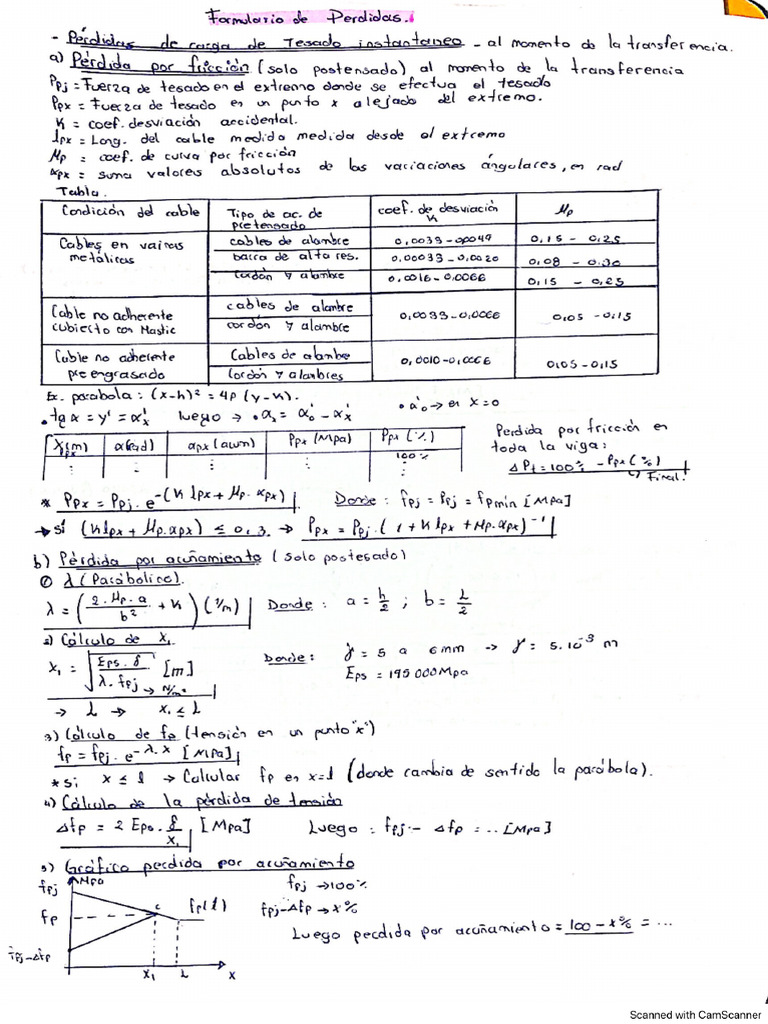 Formulario de Perdidas.
- Pérdidas de carga de Tesado instantaneo - al momento de la transferencia.
a) Pérdida por fricción (solo postensado) al momento de la transferencia
Ppj = Fuerza de tesado en el extremo donde se efectua el tesado
Ppx = Fuerza de tesado en un punto x alejado del extremo.
K = coef. desviación accidental.
lpx = Long. del cable medida medida desde el extremo
μp = coef. de curva por fricción
αpx = suma valores absolutos de las variaciones ángulares, en rad
Tabla.
Condición del cable | Tipo de ac. de pretensado | coef. de desviación K | μp
Cables en vainas metálicas | cables de alambre | 0,0033-00049 | 0,15 - 0,25
barra de alta res. | 0,00033-0,0020 | 0,08 - 0,30
cordón 7 alambre | 0,0016-0,0066 | 0,15 - 0,25
Cable no adherente cubierto con Mastic | cables de alambre | 0,0033-0,0066 | 0,05 - 0,15
cordón 7 alambre
Cable no adherente pre engrasado | Cables de alambre | 0,0010-0,0066 | 0,05-0,15
Cordón 7 alambres
Ex. parabola: (x-h)² = 4p (y-k).
• tg α = y' = α'x luego → • αx = α'o - α'x • α'o → en x=0
X(m) lpx | α(rad) | αpx (acum) | Ppx (MPa) | Ppx (%)
100%
⋮ ⋮ ⋮ ⋮ ⋮
Perdida por fricción en
toda la viga:
ΔPt = 100% - Ppx (%)
↳ Final.
* Ppx = Ppj. e^-(K lpx + μp. αpx) Donde: fpj = Ppj = fpmin [MPa]
→ si (K lpx + μp. αpx) ≤ 0,3 → Ppx = Ppj. (1 + K lpx + μp. αpx)^-1
b) Pérdida por acuñamiento (solo postesado)
① λ (Parábolico).
λ = (2. μp. a / b² + K) (1/m) Donde: a = h/2 ; b = L/2
2) Cálculo de X1
X1 = √(Eps. δ / λ. fpj) [m] Donde: γ = 5 a 6mm → γ = 5.10⁻³ m
→ N/m²
Eps = 195 000 Mpa
→ L → X1 ≤ L
3) Cálculo de fp (tensión en un punto "x")
fp = fpj. e^-λ.x [MPa]
* si x ≤ l → Calcular fp en x=l (donde cambia de sentido la parábola).
4) Cálculo de la pérdida de tensión
Δfp = 2 Eps. δ/X1 [MPa] Luego: fpj - Δfp = ... [MPa]
5) Gráfico perdida por acuñamiento
Mpa
fpj
fp
fpj-Δfp
c
fp(l)
X1 L X
fpj → 100%
fpj-Δfp → x%
Luego perdida por acuñamiento = 100 - x% = ...
Scanned with CamScanner